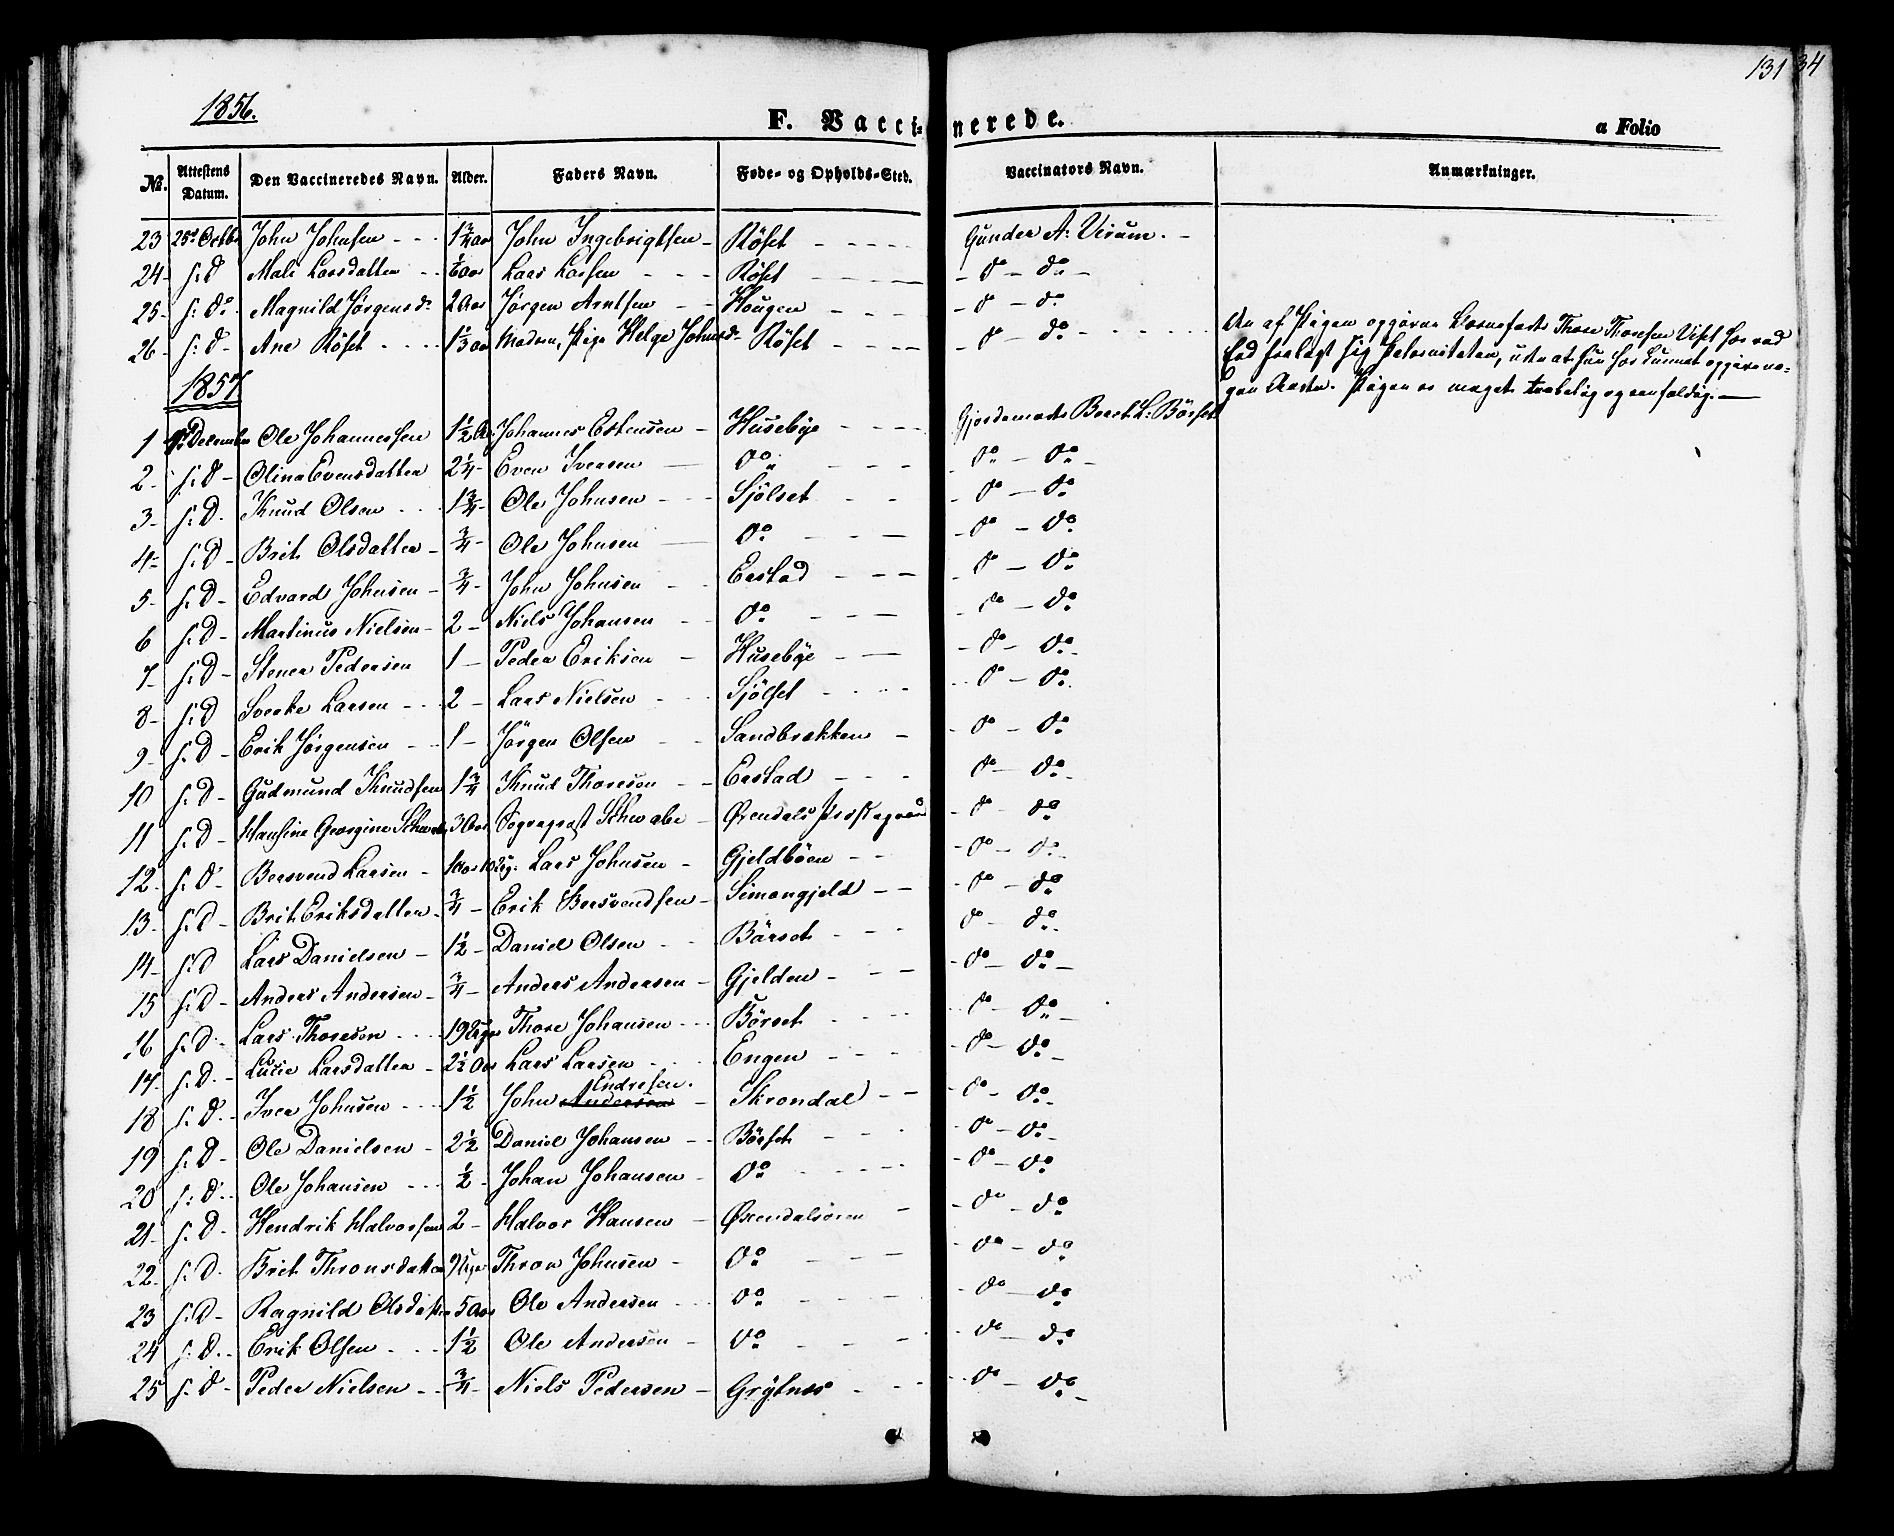 131 34
1856.
F. Vaccinerede.
a Folio
No. Attestens Datum. Den Vaccineredes Navn. Alder. Faders Navn. Føde- og Opholds-Sted. Vaccinators Navn. Anmærkninger.
23 25de Octbr John Johnsen 1 3/4 aar John Ingebrigtsen Röset Gunder A. Virum.
24 s: D Mali Larsdatter Lars Larsen Röset do do
25 s: Do Magnild Jørgensdr 2 Aar Jørgen Arntsen Hougen do do
26 s: D Ane Röset Moderen, Pige Helge Johnsdr Röset do do Den af Pigen opgivne Barnefader Thore Thoresen Viset har ved
Eed fralagt sig Paterniteten, uden at hun har kunnet opgive no-
gen Anden. Pigen er meget taabelig og eenfoldig.
1857
1 December Ole Johannessen 1 1/2 Aar Johannes Estensen Husebye Gjordemoder Beret L. Börset
2 s: D Olina Evensdatter 2 1/4 Even Iversen Do Do Do
3 s: D. Knud Olsen 1 3/4 Ole Johnsen Sjölset Do Do
4 s: D Brit Olsdatter 3/4 Ole Johnsen Do Do Do
5 s: D Edvard Johnsen 3/4 John Johnsen Eerstad Do Do
6 s: D Martinus Nielsen 2 Niels Johansen Do Do Do
7 s: D Stener Pedersen 1 Peder Eriksen Husebye Do Do
8 s: D Sverke Larsen 2 Lars Nielsen Sjölset Do Do
9 s: D Erik Jørgensen 1 Jörgen Olsen Sandbrekken Do Do
10 s: D Gudmund Knudsen 1 3/4 Knud Thoresen Eerstad Do Do
11 s: D Hansine Georgine Schwabe 3 Aar Sognepræst Schwabe Øxendals Præstegaard do do
12 s: D Bersvend Larsen 1 Aar 10 Uger Lars Johnsen Gjeldböen Do Do
13 s: D Brit Eriksdatter 3/4 Erik Bersvendsen Simengjeld Do do
14 s: D Lars Danielsen 1 1/2 Daniel Olsen Börset do do
15 s: D Anders Andersen 3/4 Anders Andersen Gjelden Do Do
16 s: D Lars Thoresen 19 Uger Thore Johansen Börset Do Do
17 s: D. Lucie Larsdatter 2 1/2 Aar Lars Larsen Engen Do Do
18 s: D Iver Johnsen 1 1/2 John Andersen Endresen. Skrondal Do Do
19 s: D Ole Danielsen 2 1/2 Daniel Johansen Börset Do Do
20 s: D. Ole Johansen 1/2 Johan Johansen Do Do Do
21 s: D Hendrik Halvorsen 2 Halvor Hansen Øxendalsören Do do
22 s: D. Brit Thronsdatter 9 Uger Thron Johnsen Do Do do
23 s: D Ragnild Olsdatter 5 Aar Ole Andersen Do Do do
24 s: D. Erik Olsen 1 1/2 Ole Andersen Do Do do
25 s: D Peder Nielsen 3/4 Niels Pedersen Grytnes Do Do